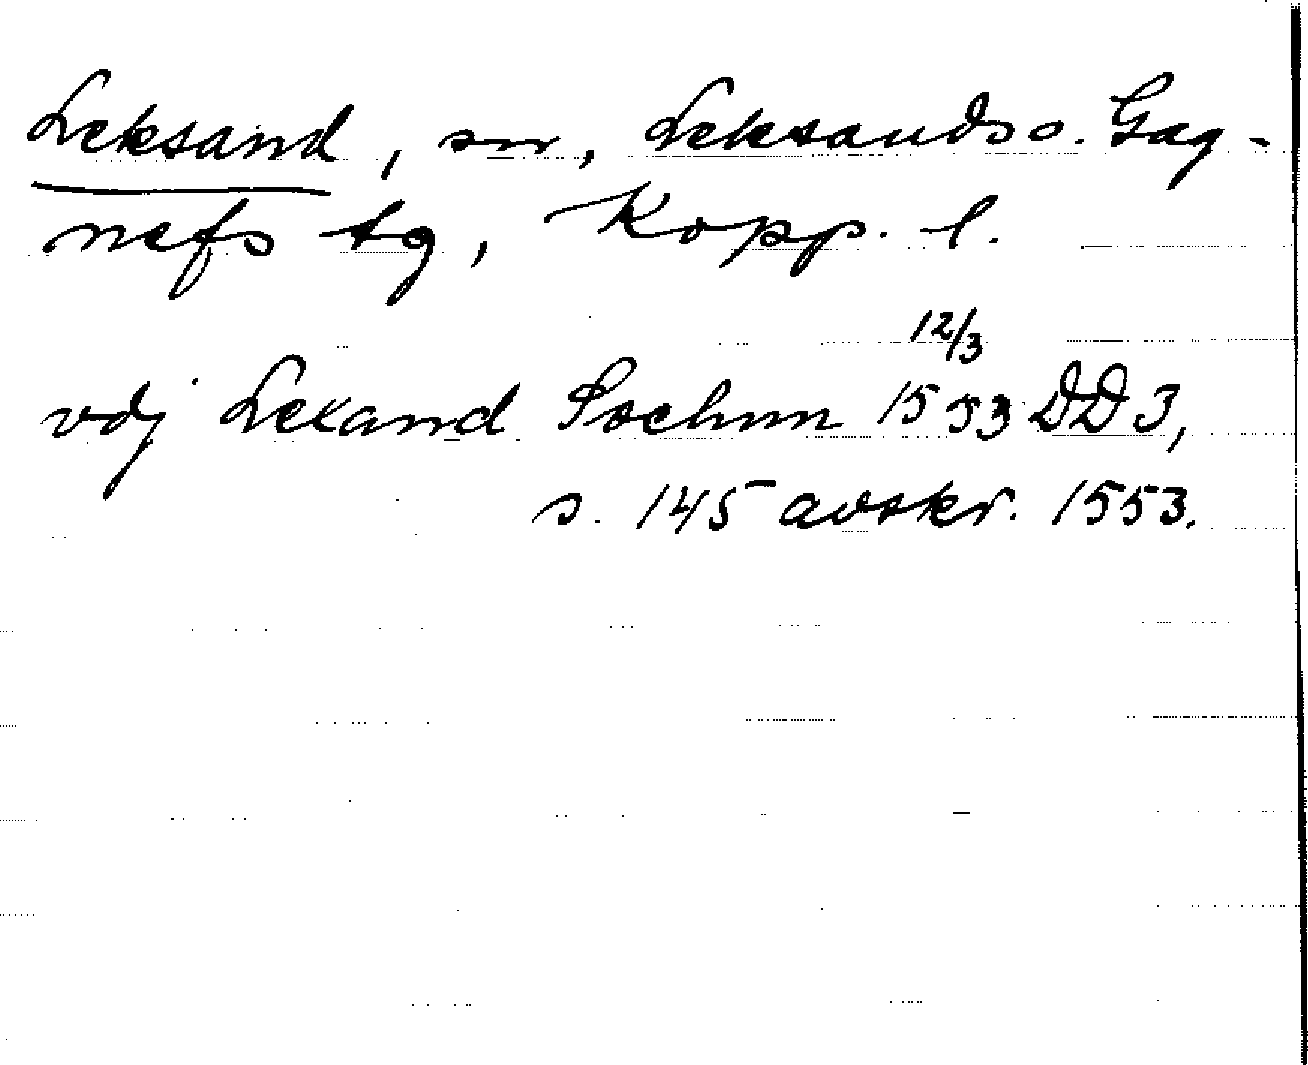 Leksand, sn, Leksands o. Gag-
nefs tg, Kopp. l.
12/3
vdj Lexand Sochnn 1553 DD 3,
s. 145 avskr. 1553.